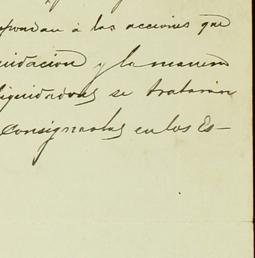 pondan á las acciones que
uidación y la manera
liquidadores se tratarán
consignarlas en los Es-